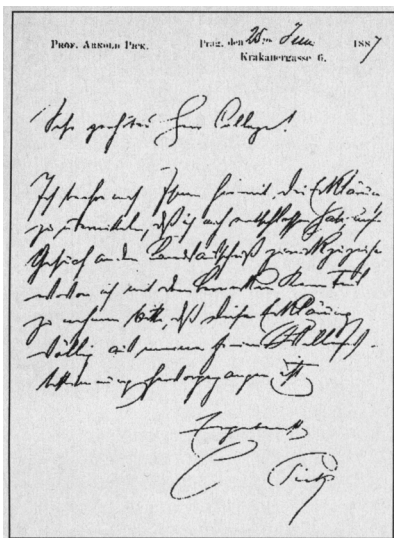 PROF. ARNOLD PICK. Prag, den 25ten Juni 1887
Krakauergasse 6.
Sehr geehrter Herr College!
Ich beehre mich Ihnen hiermit die Erklärung
zu übermitteln, daß ich mich entschlossen habe mein
Gesuch an den Landausschuß zurückzuziehen
wovon ich mit dem bemerken
zu nehmen bitte, daß diese Erklärung
völlig aus meiner freien
hervorgegangen ist
Pick